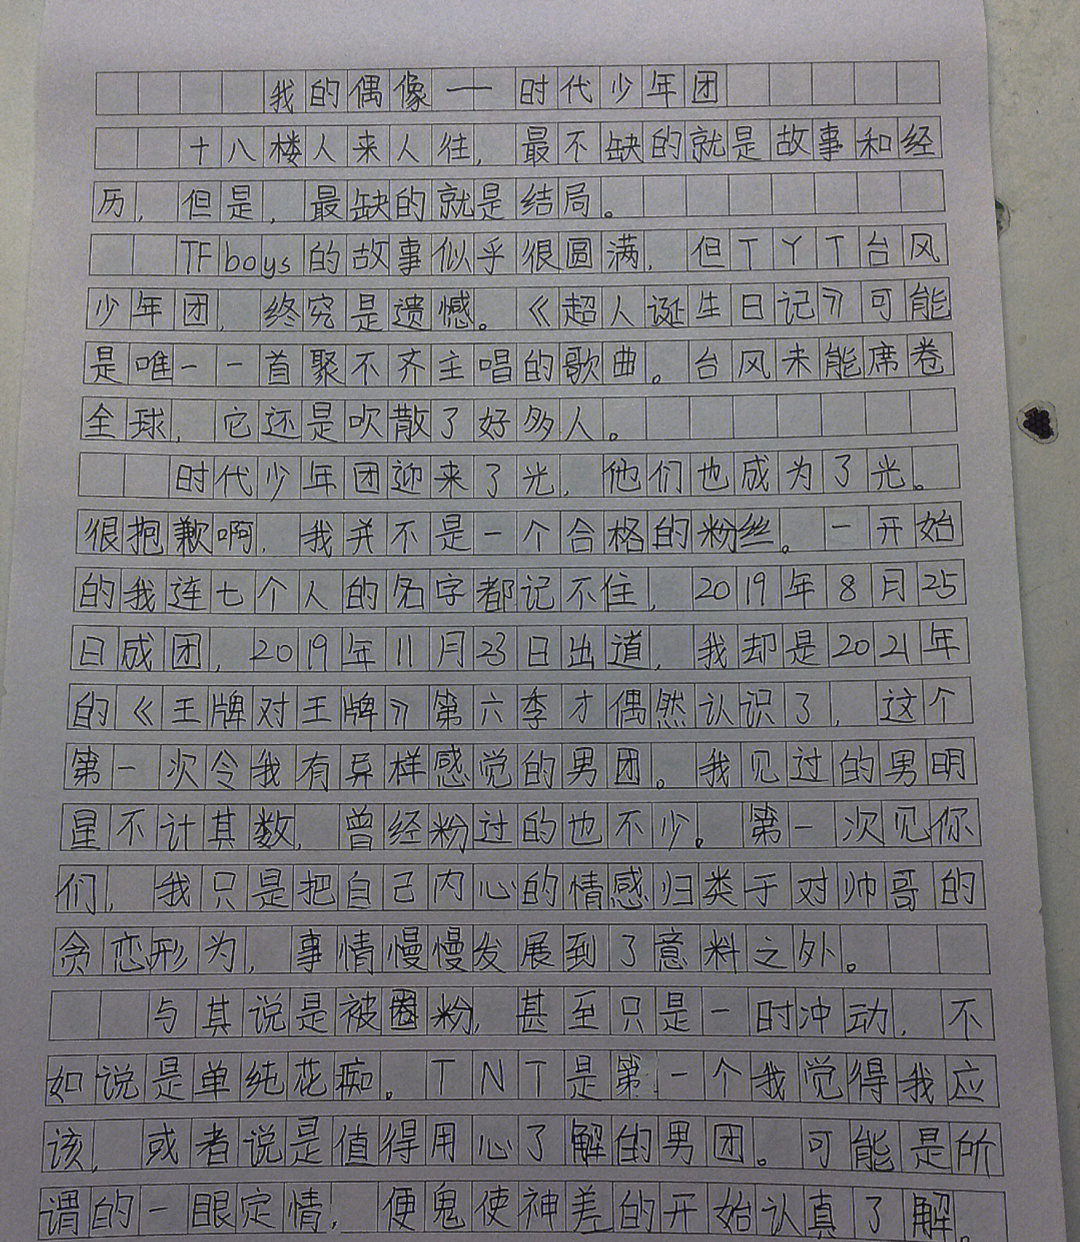 我的偶像——时代少年团
十八楼人来人往,最不缺的就是故事和经
历,但是,最缺的就是结局。
TFboys的故事似乎很圆满,但TYT台风
少年团,终究是遗憾。《超人诞生日记》可能
是唯一一首聚不齐主唱的歌曲。台风未能席卷
全球,它还是吹散了好多人。
时代少年团迎来了光,他们也成为了光。
很抱歉啊,我并不是一个合格的粉丝。一开始
的我连七个人的名字都记不住,2019年8月25
日成团,2019年11月23日出道,我却是2021年
的《王牌对王牌》第六季才偶然认识了,这个
第一次令我有异样感觉的男团。我见过的男明
星不计其数,曾经粉过的也不少。第一次见你
们,我只是把自己内心的情感归类于对帅哥的
贪恋形为,事情慢慢发展到了意料之外。
与其说是被圈粉,甚至只是一时冲动,不
如说是单纯花痴。TNT是第一个我觉得我应
该,或者说是值得用心了解的男团。可能是所
谓的一眼定情,便鬼使神差的开始认真了解。